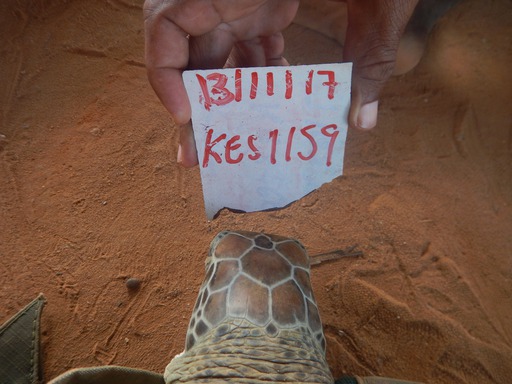 13/11/17
KES1159